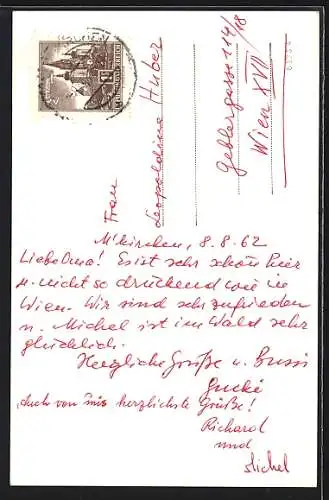 M'kirchen, 8.8.62
Liebe Oma! Es ist sehr schön hier
u. nicht so drückend wie in
Wien. Wir sind sehr zufrieden
u. Michel ist im Wald sehr
glücklich.
Herzliche Grüße u. Bussi
Gucki
Auch von mir herzlichste Grüße!
Richard
und
Michel
Frau
Leopoldine Huber
Geblergasse 114/18
Wien XVII